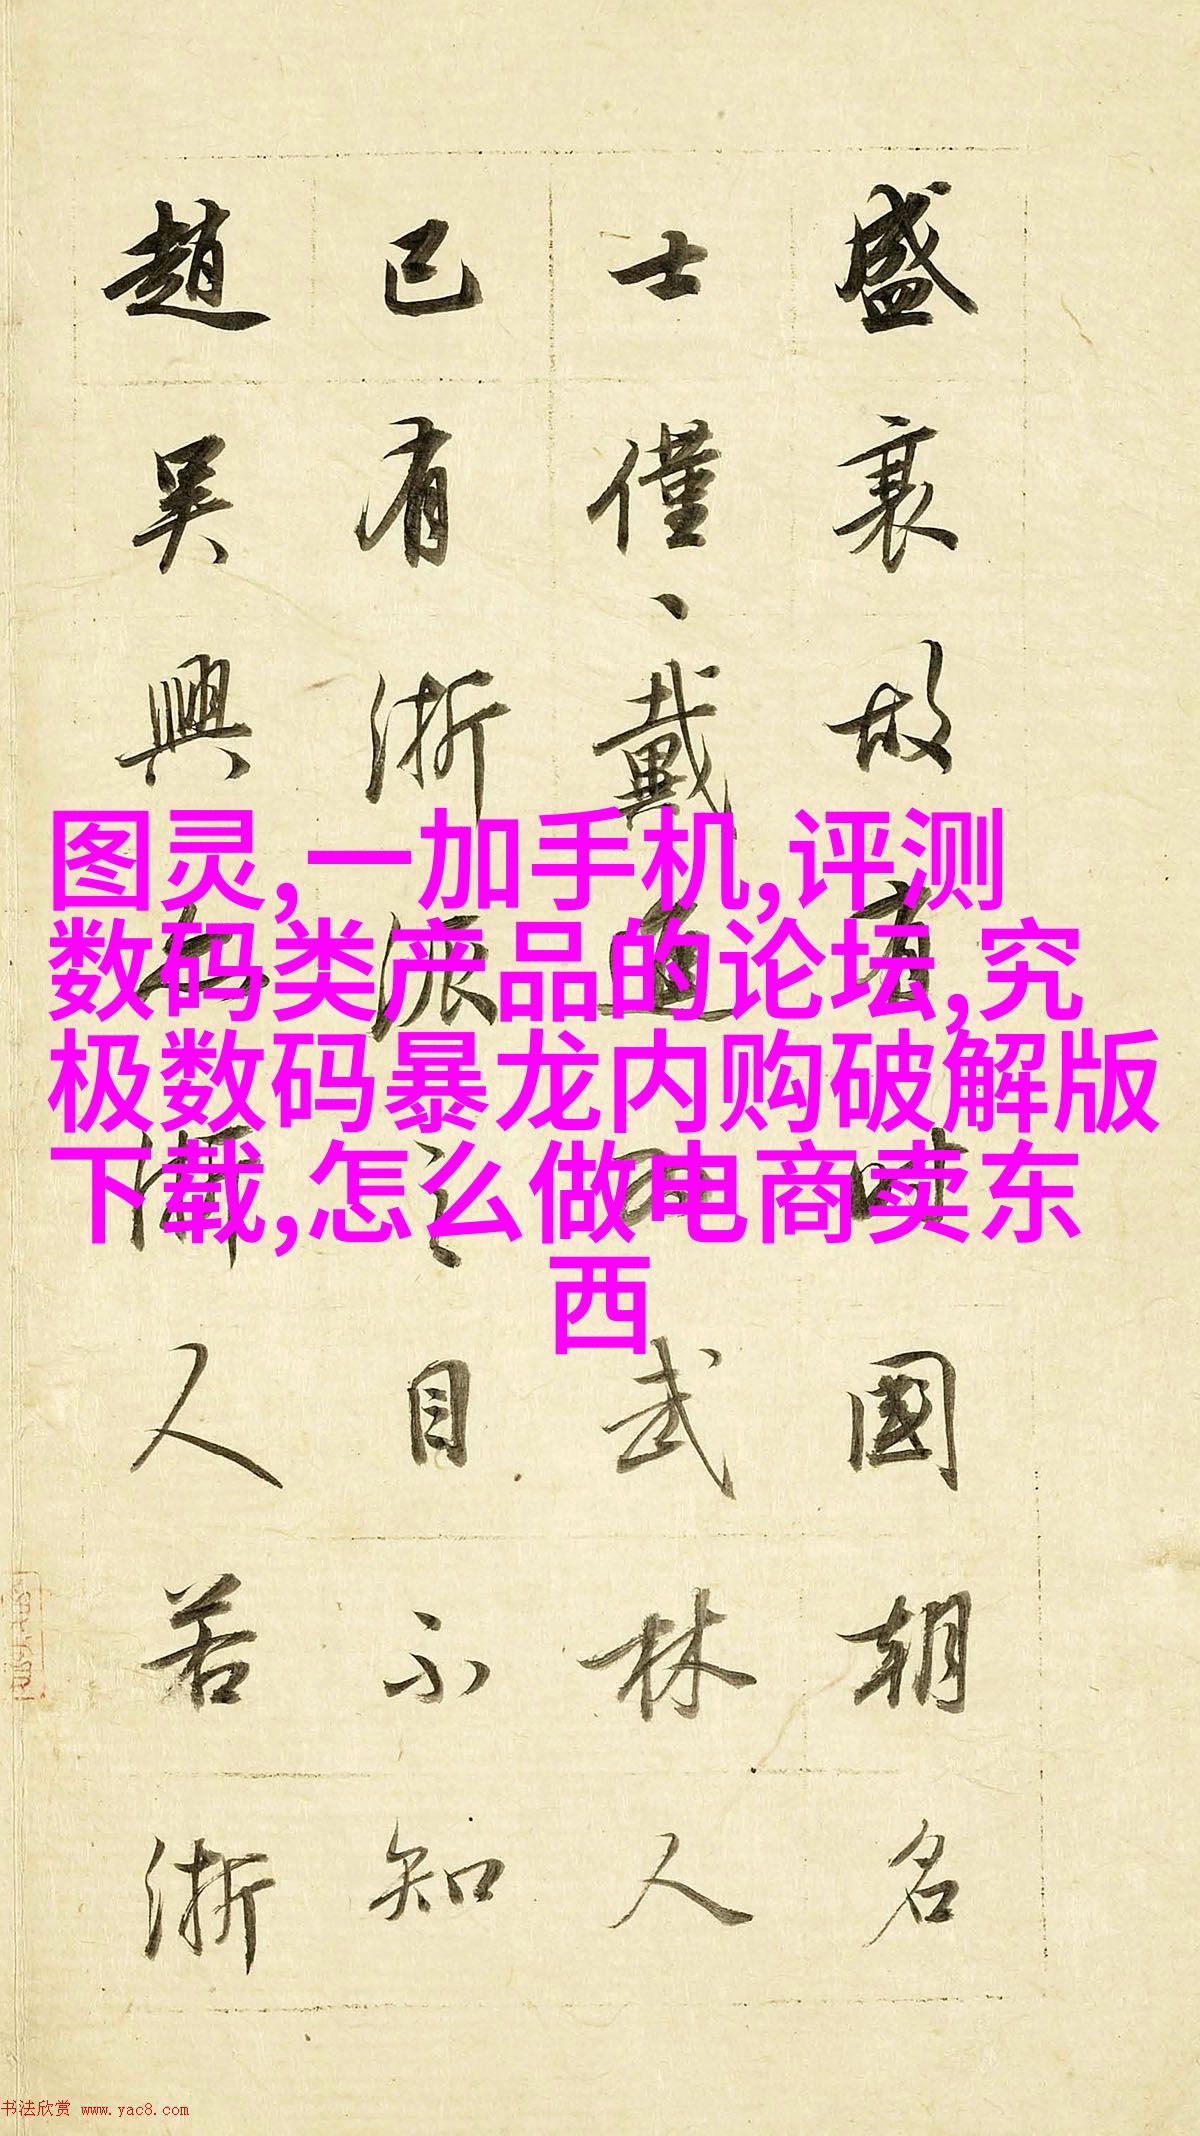 盛衰故有時國朝名
士僅、戴進武林人
已有浙派之目不知
趙吳興浙人若浙
图灵,一加手机,评测
数码类产品的论坛,究
极数码暴龙内购破解版
下载,怎么做电商卖东
西
书法欣赏 www.yac8.com